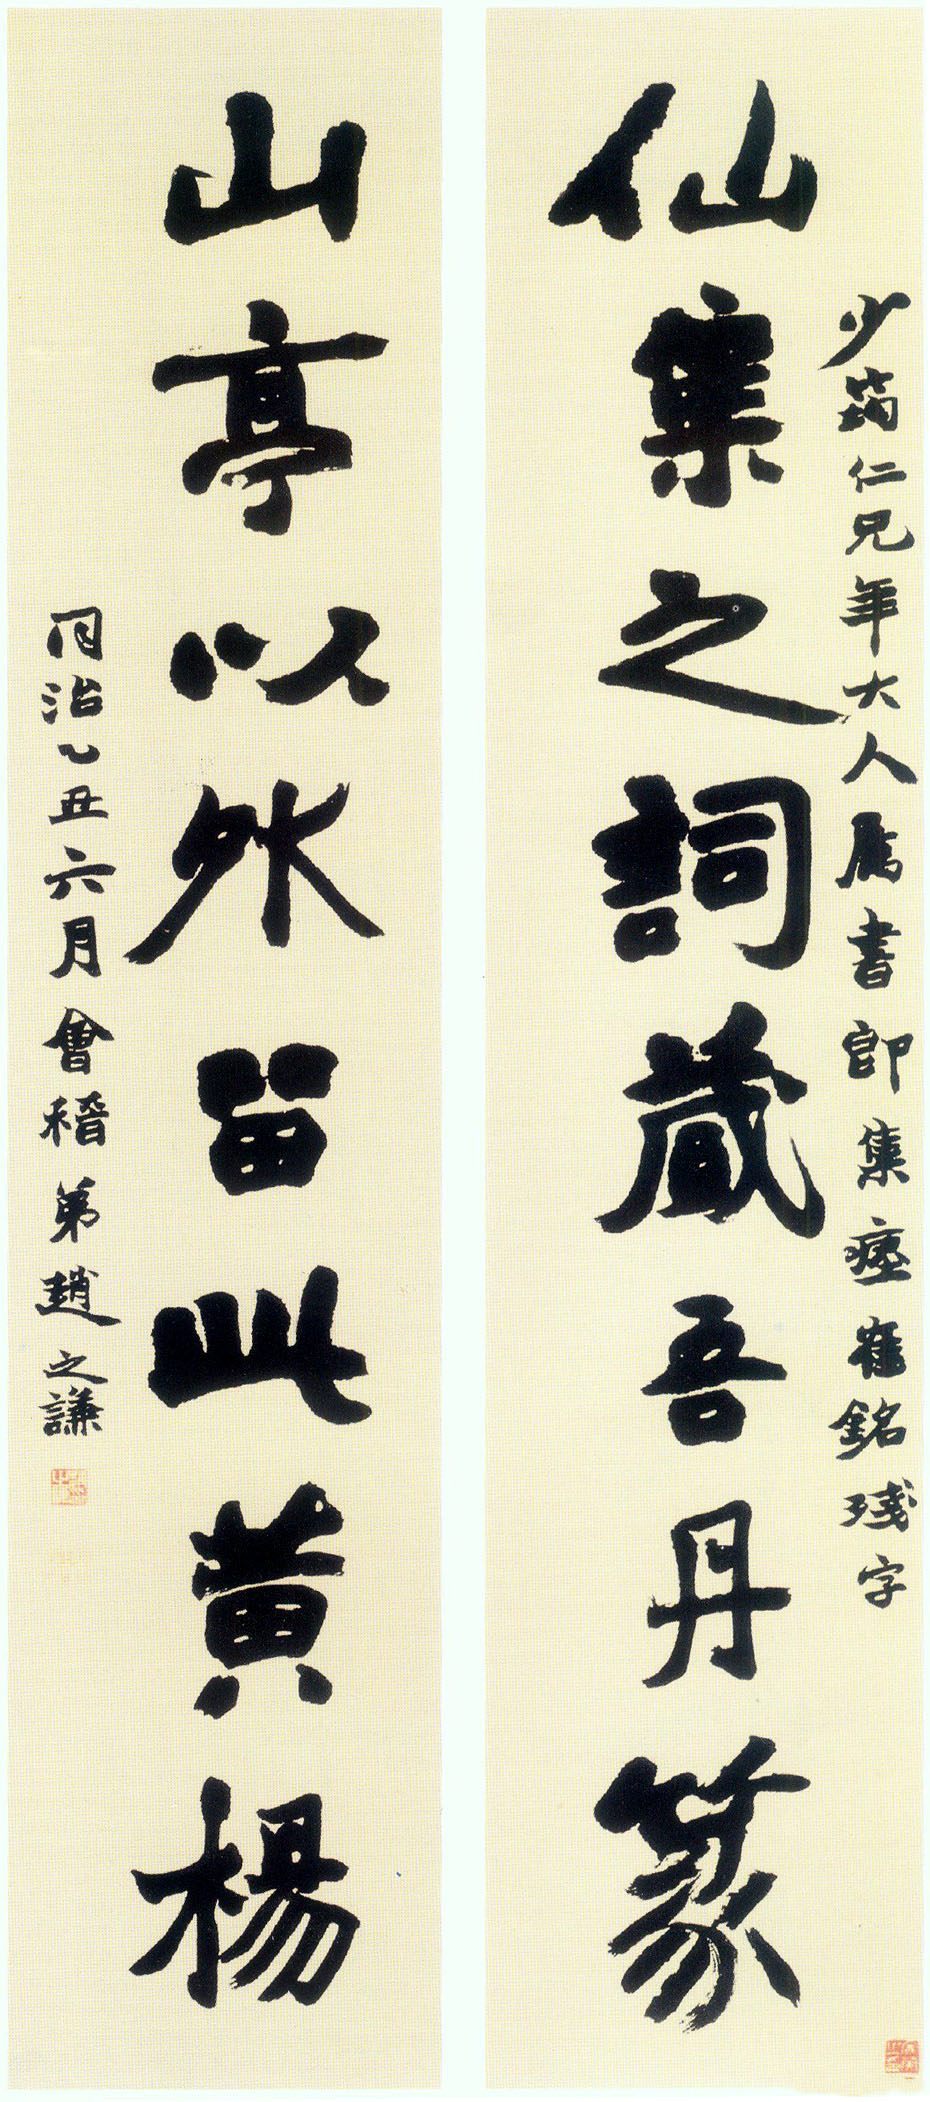 少筠仁兄年大人属書即集瘞雀銘残字
仙集之詞蔵吾丹篆
山亭以外留此黄楊
同治乙丑六月會稽弟趙之謙